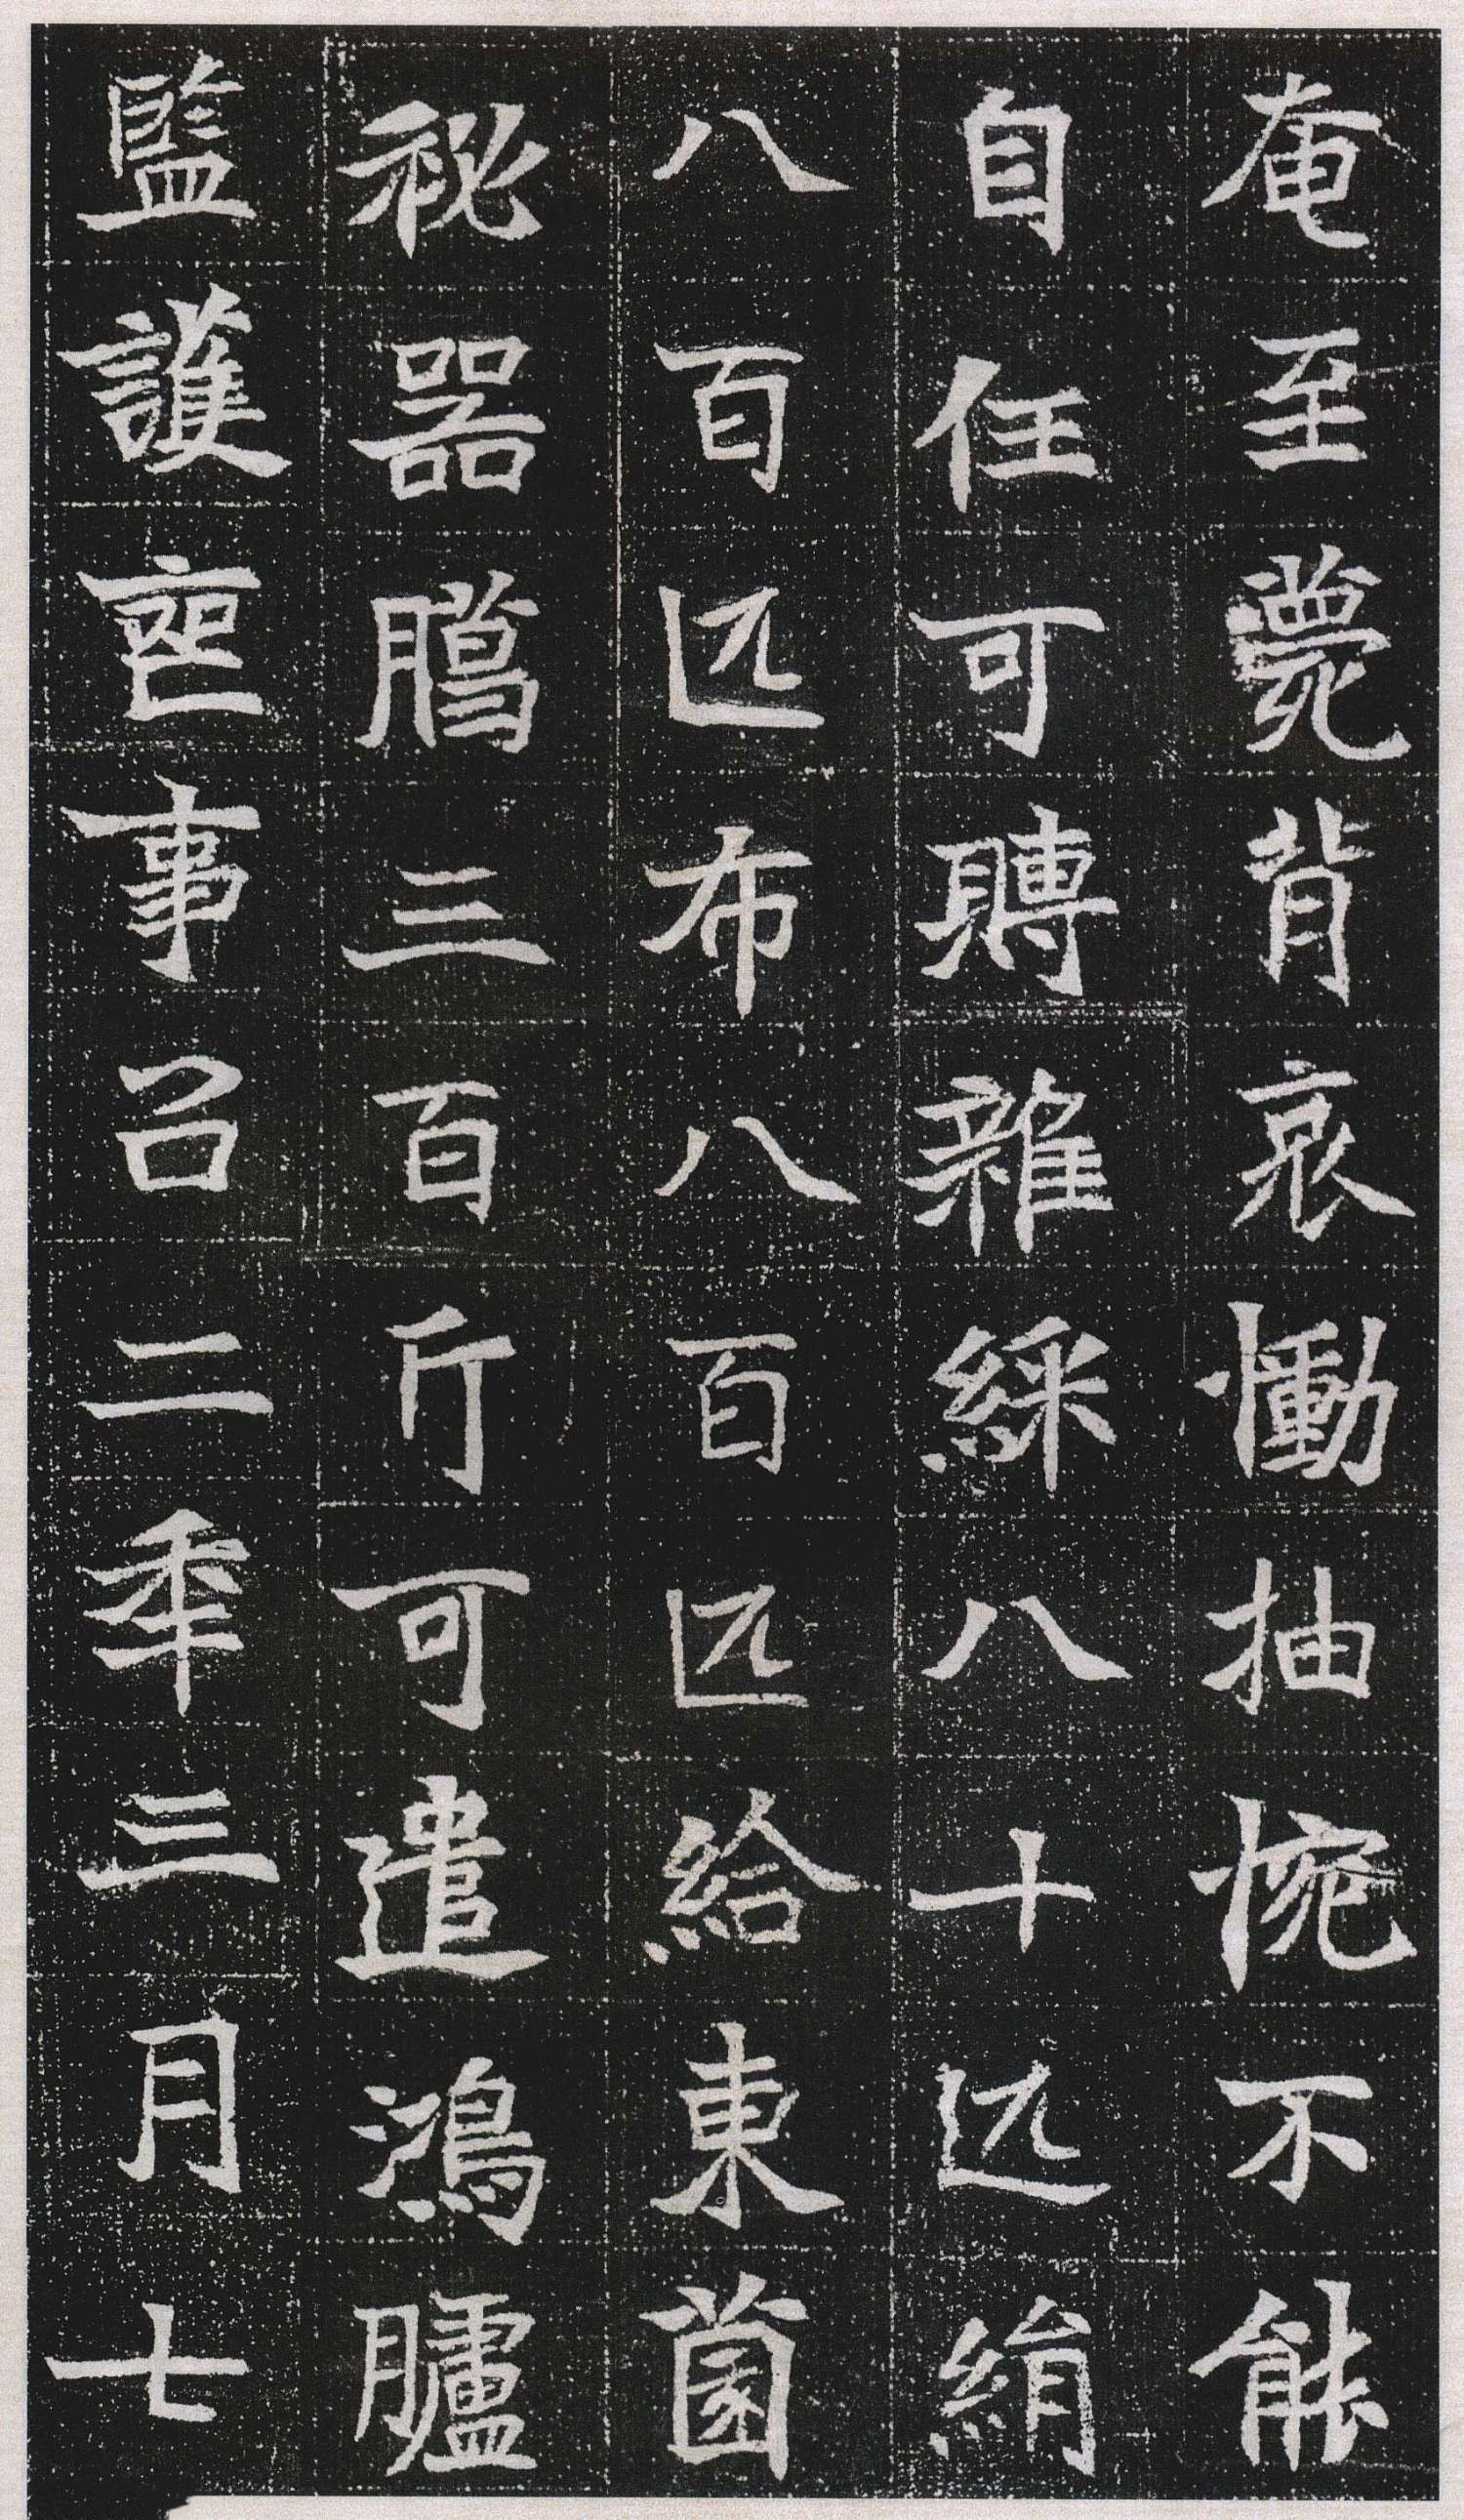 奄至薨背哀慟抽惋不能
自任可賻雜綵八十匹絹
八百匹布八百匹給東園
秘器臈三百斤可遣鴻臚
監護喪事以二年三月七